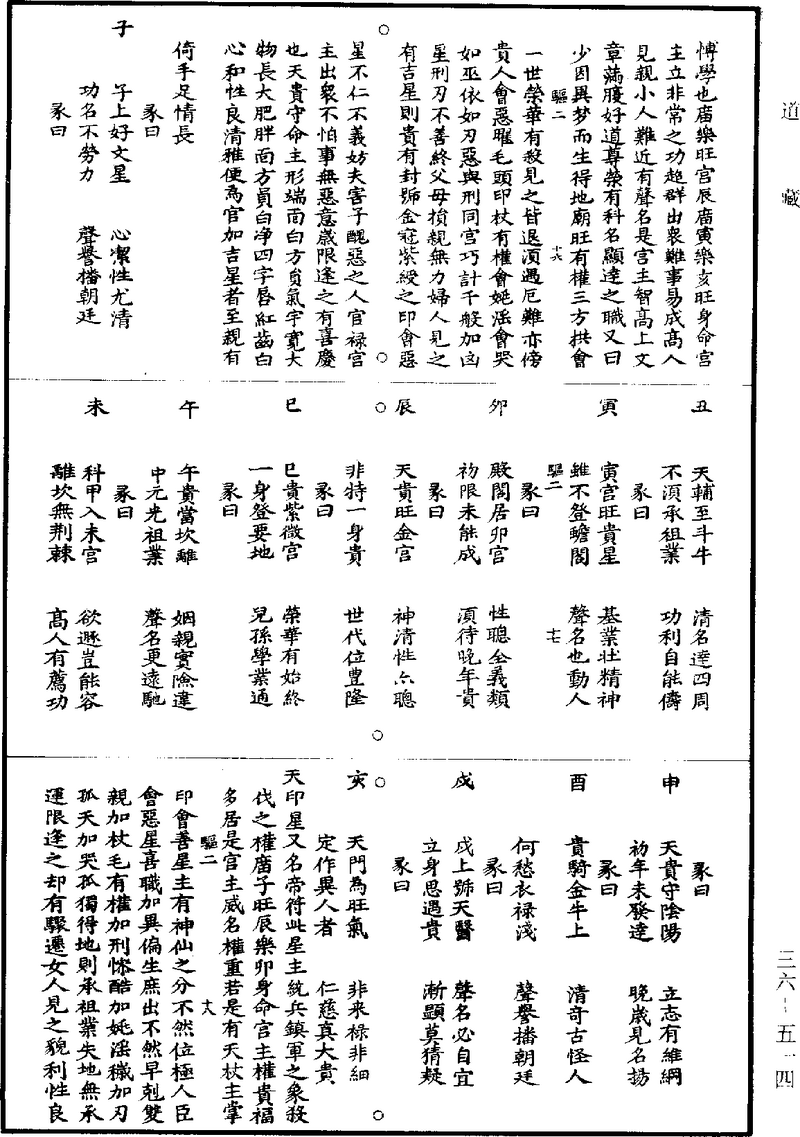 道藏
博學也廣樂旺宮辰廣寅樂亥旺身命宮
主立非常之功超群出衆難事易成高人
見親小人難近有聲名是宮主智高上文
章滿腹好道尊榮有科名顯達之職又曰
少因異梦而生得地廟旺有權三方拱會
驅二 十六
一世榮華有殺見之皆退須遇厄難亦傍
貴人會惡曜毛頭印杖有權會姚滛會哭
如巫依如刃惡與刑同宮巧計千般加凶
星刑刃不善終父母損親無力婦人見之
有吉星則貴有封號金冠紫綬之印會惡
星不仁不義妨夫害子醜惡之人官禄宮
主出衆不怕事無惡意歲限逢之有喜慶
也天貴守命主形端面白方貟氣宇寬大
物長大肥胖面方員白净四字唇紅齒白
心和性良清雅便為官加吉星者至親有
倚手足情長
彖曰
子 子上好文星 心潔性尤清
功名不勞力 聲譽播朝廷
彖曰
丑 天輔至斗牛 清名達四周
不湏承祖業 功利自能儔
彖曰
寅 寅宮旺貴星 基業壯精神
雖不登蟾閣 聲名也動人
驅二 十七
彖曰
卯 殿閣居卯宮 性聰全義類
初限未能成 湏待晚年貴
彖曰
辰 天貴旺金宮 神清性六聰
非特一身貴 世代位豊隆
彖曰
巳 巳貴紫微宮 榮華有始終
一身登要地 兒孫學業通
彖曰
午 午貴當坎離 姻親實險違
中元光祖業 聲名更遠馳
彖曰
未 科甲入未宮 欲遯豈能容
離坎無荆棘 高人有薦功
彖曰
申 天貴守陰陽 立志有維綱
初年未發達 晚歲見名揚
彖曰
酉 貴騎金牛上 清奇古怪人
何愁衣禄淺 聲譽播朝廷
彖曰
戌 戌上號天醫 聲名必自宜
立身思遇貴 漸顯莫猜疑
彖曰
亥 天門為旺氣 非来禄非細
定作異人者 仁慈真大貴
天印星又名帝符此星主統兵鎮軍之象殺
伐之權廣子旺辰樂卯身命宮主權貴福
多居是宮主威名權重若是有天杖主掌
驅二 十八
印會善星主有神仙之分不然位極人臣
會惡星喜職加異偏生庶出不然早剋雙
親加杖毛有權加刑慘酷加姚滛穢加刃
孤天加哭孤獨得地則承祖業失地無承
運限逢之却有驟遷女人見之貌利性良
三六—五一四